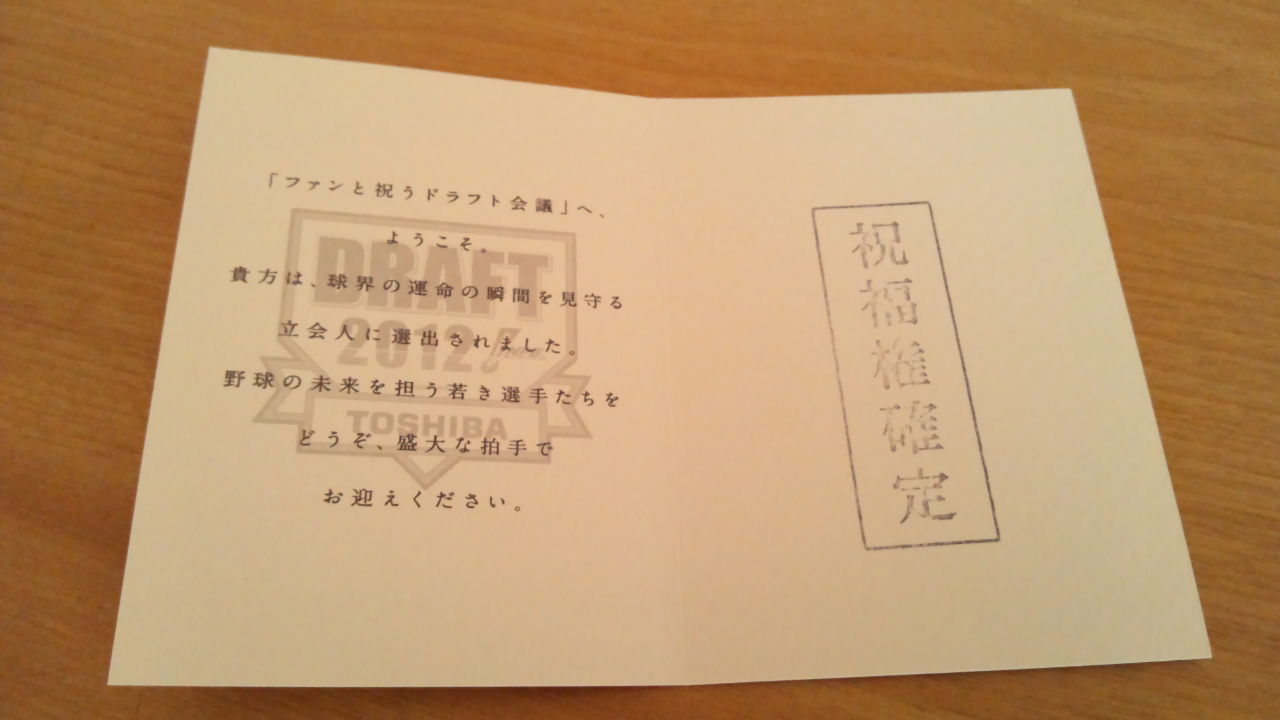 「ファンと祝うドラフト会議」へ、
ようこそ。
貴方は、球界の運命の瞬間を見守る
立会人に選出されました。
野球の未来を担う若き選手たちを
どうぞ、盛大な拍手で
お迎えください。
DRAFT
2012
TOSHIBA
祝福権確定